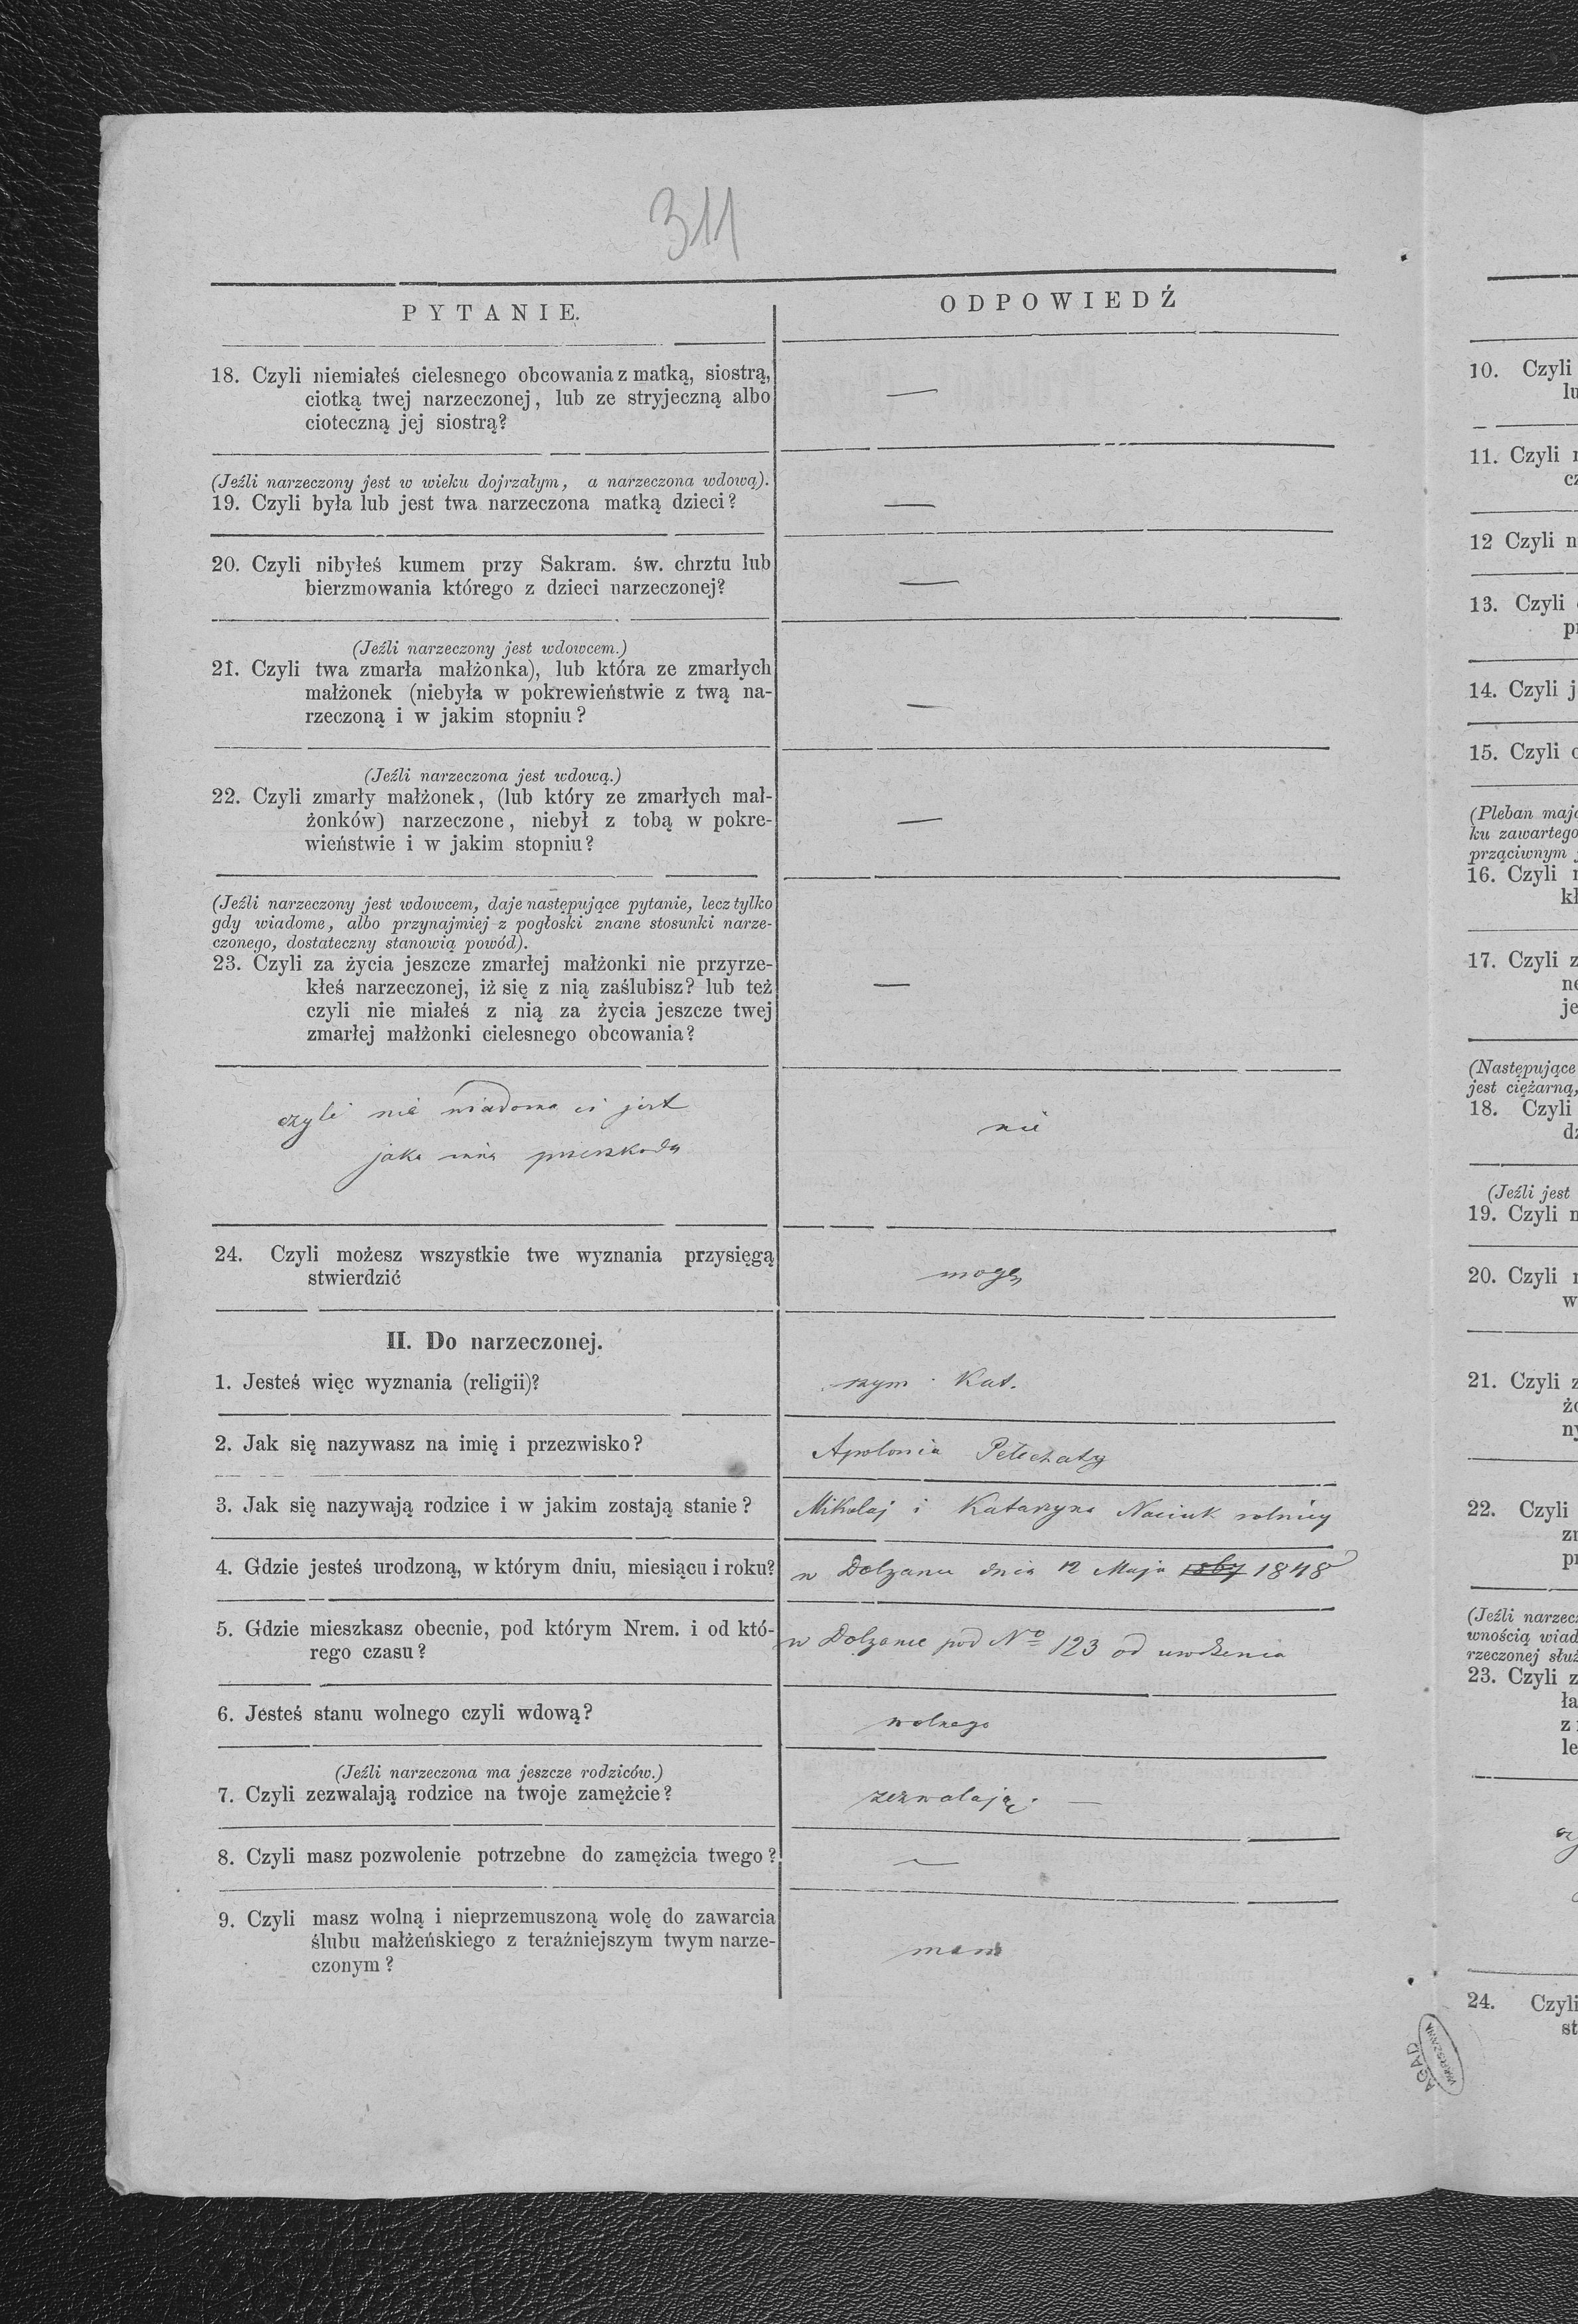 311
PYTANIE.
ODPOWIEDŹ
18. Czyli niemiałeś cielesnego obcowania z matką, siostrą,
ciotką twej narzeczonej, lub ze stryjeczną albo
cioteczną jej siostrą?
—
(Jeźli narzeczony jest w wieku dojrzałym, a narzeczona wdową).
19. Czyli była lub jest twa narzeczona matką dzieci?
—
20. Czyli nibyłeś kumem przy Sakram. św. chrztu lub
bierzmowania którego z dzieci narzeczonej?
—
(Jeźli narzeczony jest wdowcem.)
21. Czyli twa zmarła małżonka), lub która ze zmarłych
małżonek (niebyła w pokrewieństwie z twą na-
rzeczoną i w jakim stopniu?
—
(Jeźli narzeczona jest wdową.)
22. Czyli zmarły małżonek, (lub który ze zmarłych mał-
żonków) narzeczone, niebył z tobą w pokre-
wieństwie i w jakim stopniu?
—
(Jeźli narzeczony jest wdowcem, daje następujące pytanie, lecz tylko
gdy wiadome, albo przynajmiej z pogłoski znane stosunki narze-
czonego, dostateczny stanowią powód).
23. Czyli za życia jeszcze zmarłej małżonki nie przyrze-
kłeś narzeczonej, iż się z nią zaślubisz? lub też
czyli nie miałeś z nią za życia jeszcze twej
zmarłej małżonki cielesnego obcowania?
—
czyli nie wiadoma ci jest
jaka inna przeszkoda
nie
24. Czyli możesz wszystkie twe wyznania przysięgą
stwierdzić
mogę
II. Do narzeczonej.
1. Jesteś więc wyznania (religii)?
rzym. Kat.
2. Jak się nazywasz na imię i przezwisko?
Apolonia Pełechaty
3. Jak się nazywają rodzice i w jakim zostają stanie?
Mikołaj i Katarzyna Naciuk rolnicy
4. Gdzie jesteś urodzoną, w którym dniu, miesiącu i roku?
w Dolzance dnia 12 Maja 1848
5. Gdzie mieszkasz obecnie, pod którym Nrem. i od któ-
rego czasu?
w Dolzance pod No 123 od urodzenia
6. Jesteś stanu wolnego czyli wdową?
wolnego
(Jeźli narzeczona ma jeszcze rodziców.)
7. Czyli zezwalają rodzice na twoje zamężcie?
zezwalają. —
8. Czyli masz pozwolenie potrzebne do zamężcia twego?
—
9. Czyli masz wolną i nieprzemuszoną wolę do zawarcia
ślubu małżeńskiego z teraźniejszym twym narze-
czonym?
mam
10. Czyli
lu
11. Czyli
cz
12 Czyli n
13. Czyli
pr
14. Czyli j
15. Czyli
(Pleban mają
ku zawartego
prząciwnym
16. Czyli
kł
17. Czyli z
ne
je
(Następujące
jest ciężarną,
18. Czyli
dz
(Jeźli jest
19. Czyli n
20. Czyli
w
21. Czyli z
żo
ny
22. Czyli
zm
pr
(Jeźli narzecz
wnością wiad
rzeczonej służ
23. Czyli z
ła
z
le
24. Czyli
st
AGAD
WARSZAWA